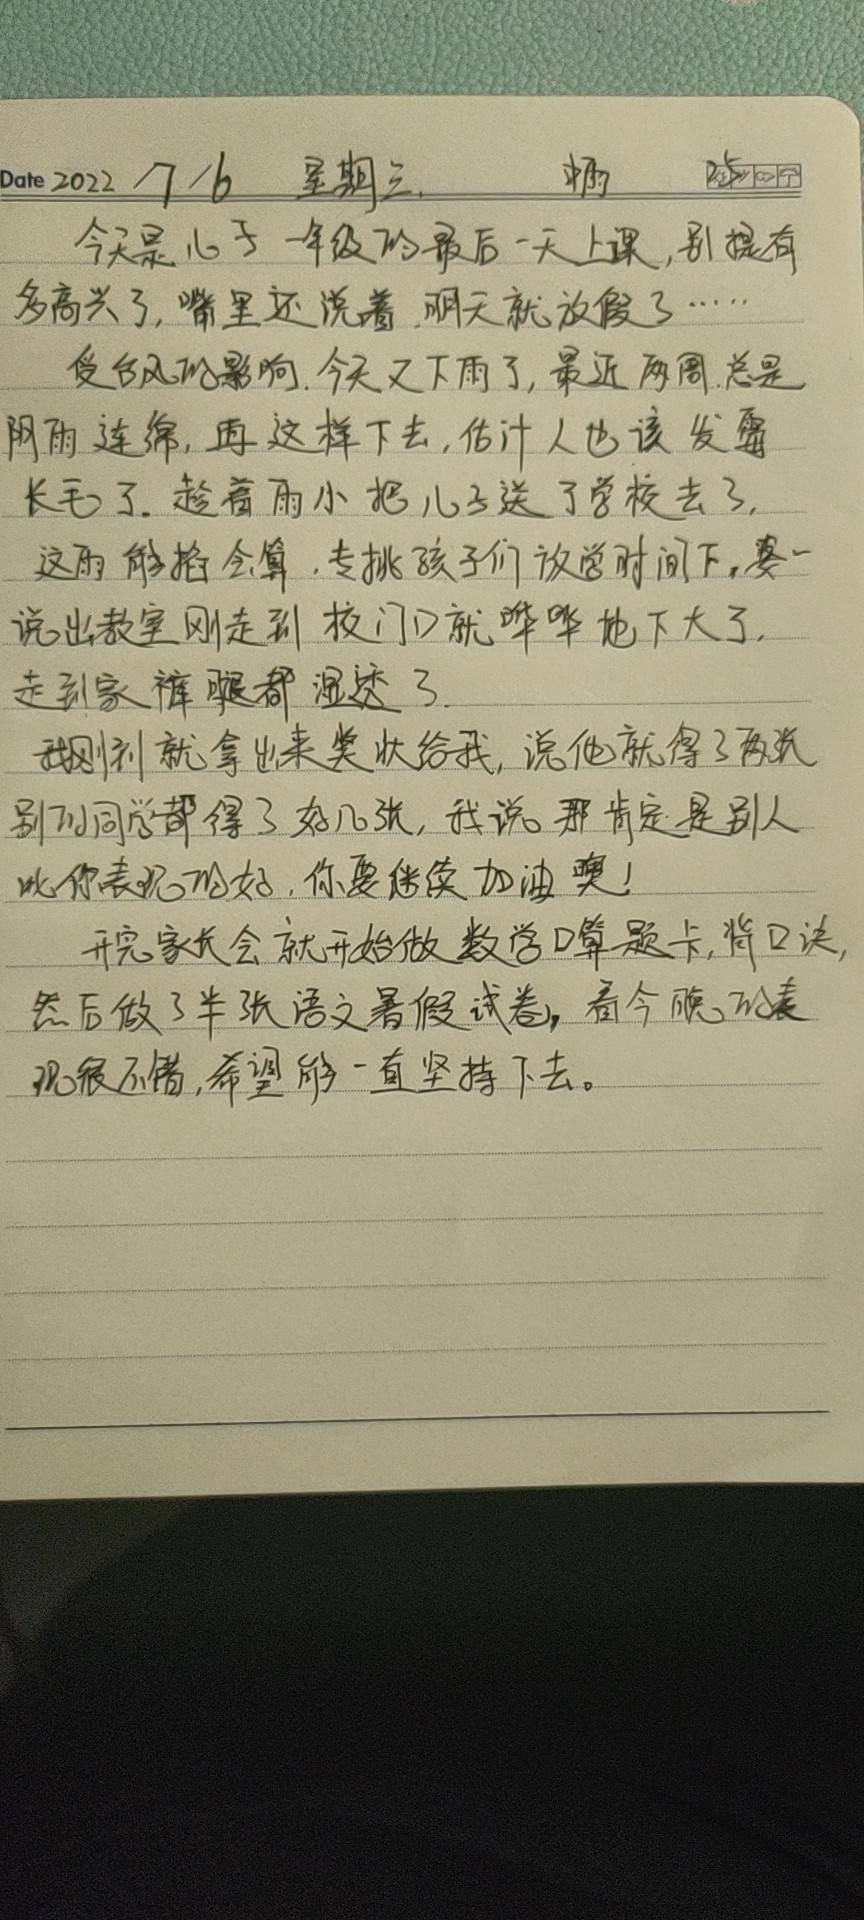 Date 2022 7/6 星期三. 中雨
今天是儿子一年级的最后一天上课,别提有
多高兴了,嘴里还说着.明天就放假了……
受台风的影响.今天又下雨了,最近两周.总是
阴雨连绵,再这样下去,估计人也该发霉
长毛了.趁着雨小把儿子送了学校去了,
这雨能掐会算.专挑孩子们放学时间下。娄一
说出教室刚走到校门口就哗哗地下大了,
走到家裤腿都湿透了.
我刚到就拿出来奖状给我,说他就得了两张
别的同学都得了好几张,我说。那肯定是别人
比你表现的好.你要继续加油噢!
开完家长会就开始做数学口算题卡,背口诀,
然后做了半张语文暑假试卷。看今晚的表
现很不错,希望能一直坚持下去。